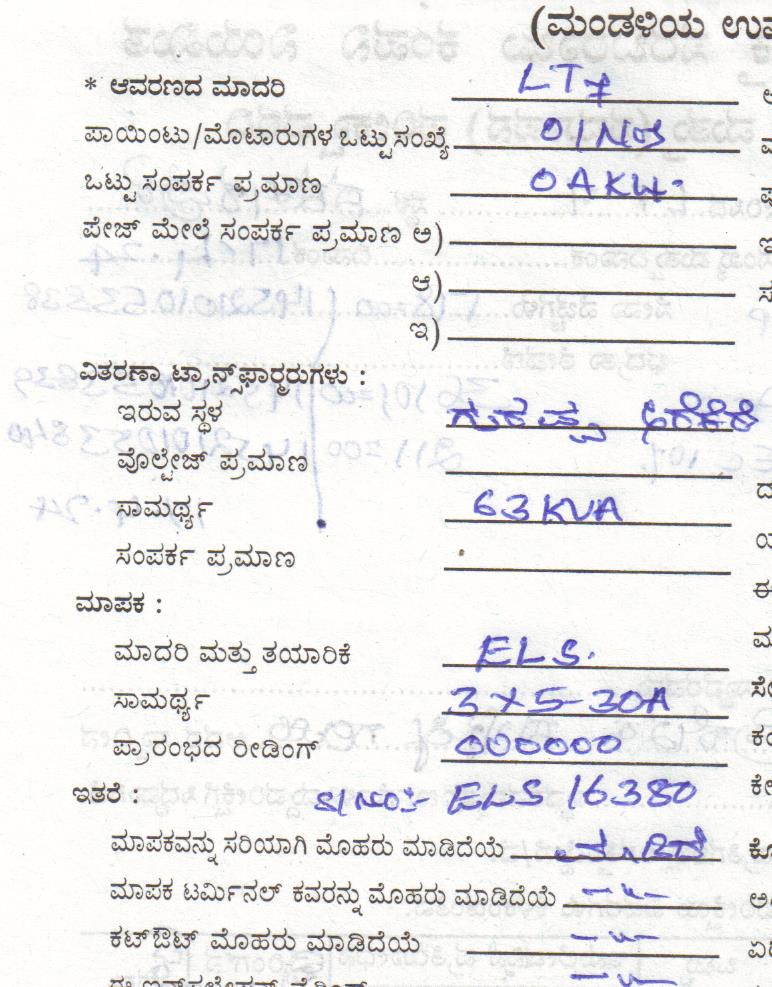 (ಮಂಡಳಿಯ
* ಆವರಣದ ಮಾದರಿ LT7
ಪಾಯಿಂಟು/ಮೊಟಾರುಗಳ ಒಟ್ಟು ಸಂಖ್ಯೆ 01 Nos
ಒಟ್ಟು ಸಂಪರ್ಕ ಪ್ರಮಾಣ
ಪೇಜ್ ಮೇಲೆ ಸಂಪರ್ಕ ಪ್ರಮಾಣ ಅ)
ಆ)
ಇ)
ವಿತರಣಾ ಟ್ರಾನ್ಸ್‌ಫಾರ್‍ಮರುಗಳು :
ಇರುವ ಸ್ಥಳ
ವೊಲ್ಟೇಜ್ ಪ್ರಮಾಣ
ಸಾಮರ್ಥ್ಯ 63 KVA
ಸಂಪರ್ಕ ಪ್ರಮಾಣ
ಮಾಪಕ :
ಮಾದರಿ ಮತ್ತು ತಯಾರಿಕೆ ELS.
ಸಾಮರ್ಥ್ಯ 3 X 5-30A
ಪ್ರಾರಂಭದ ರೀಡಿಂಗ್ 000000
ಇತರೆ : Sl No:- ELS 16380
ಮಾಪಕವನ್ನು ಸರಿಯಾಗಿ ಮೊಹರು ಮಾಡಿದೆಯೆ
ಮಾಪಕ ಟರ್ಮಿನಲ್ ಕವರನ್ನು ಮೊಹರು ಮಾಡಿದೆಯೆ -"-
ಕಟ್‌ಔಟ್ ಮೊಹರು ಮಾಡಿದೆಯೆ -"-